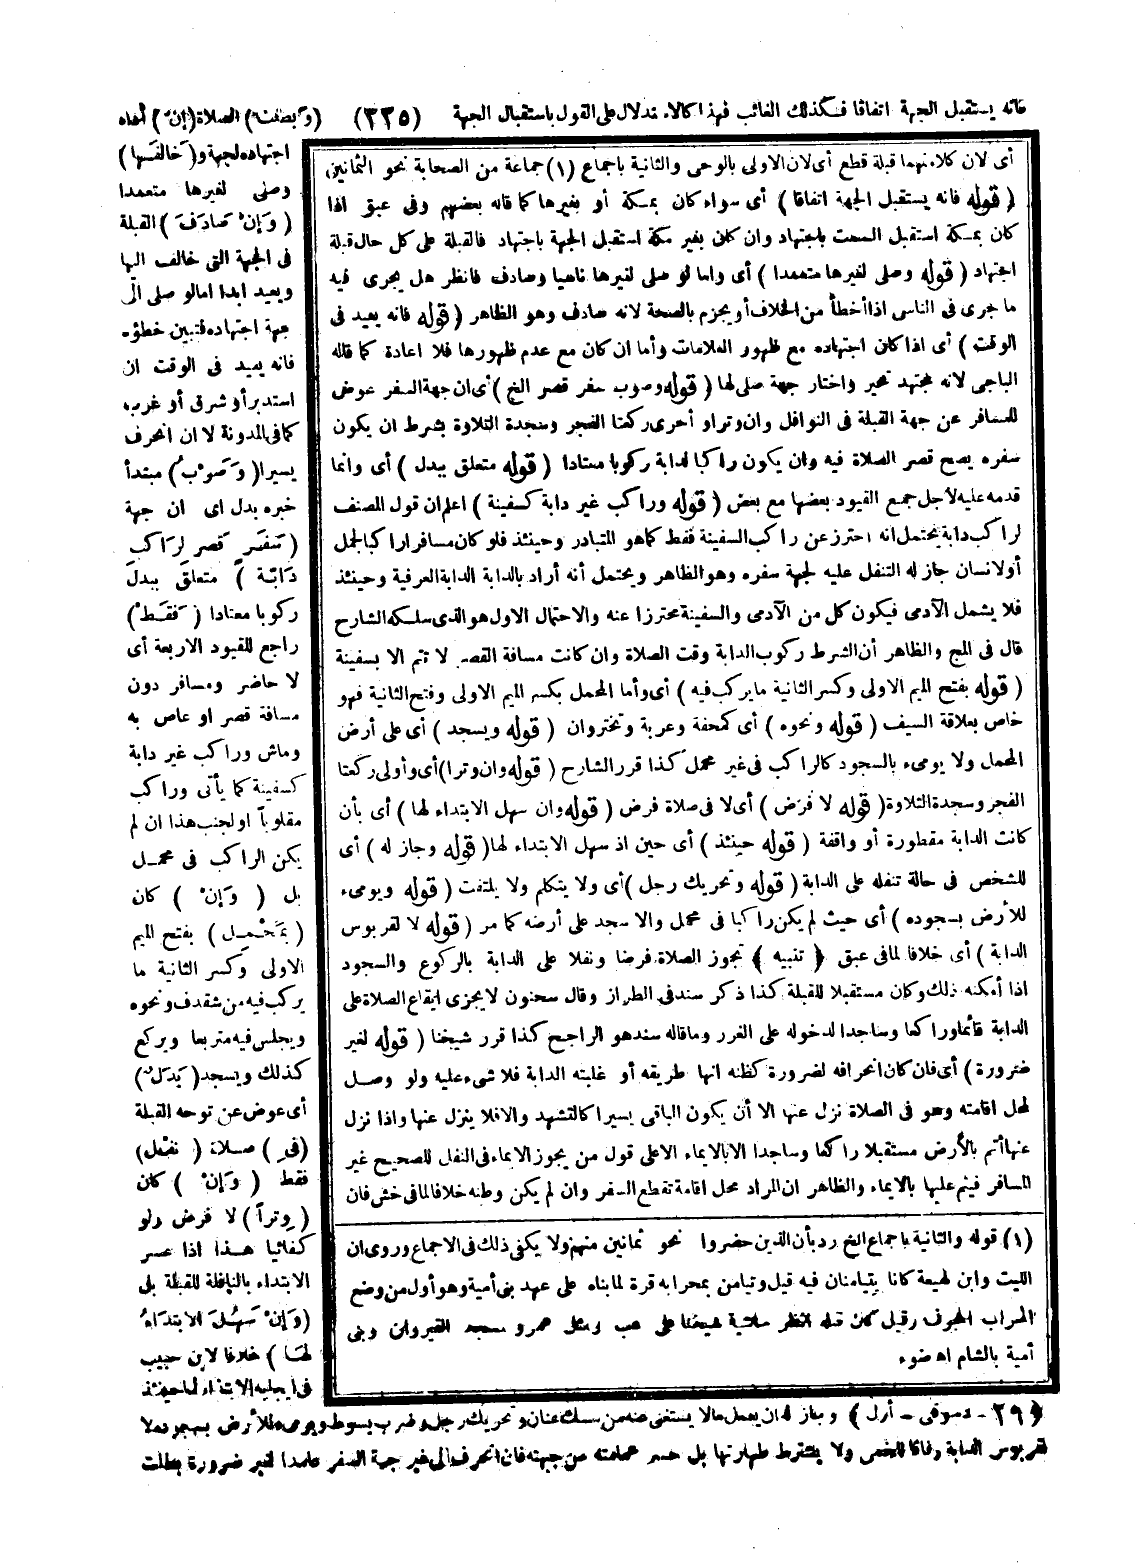 فانه يستقبل الجهة اتفاقا فكذلك الغائب فهذا كالاستدلال على القول باستقبال الجهة (٢٢٥) (وَبطلت) الصلاة (إن) أداه
اجتهاده لجهة و(خالفها)
وصلى لغيرها متعمدا
(وَإنْ صادَفَ) القبلة
فى الجهة التى خالف اليها
ويعيد ابدا امالو صلى الى
جهة اجتهاده فتبين خطؤه
فانه يعيد فى الوقت ان
استدبر أو شرق أو غرب
كما فى المدونة لا ان انحرف
يسيرا (وَصَوْبُ) مبتدأ
خبره بدل اى ان جهة
(سَفَرِ قصر لرَاكب
دَابّة) متعلق ببدل
ركوبا معتادا (فقطْ)
راجع للقيود الاربعة أى
لا حاضر ومسافر دون
مسافة قصر او عاص به
وماش وراكب غير دابة
كسفينة كما يأتى وراكب
مقلوباً او لجنب هذا ان لم
يكن الراكب فى محمل
بل (وَإنْ) كان
(بمَحْمِل) بفتح الميم
الاولى وكسر الثانية ما
يركب فيه من شقدف ونحوه
ويجلس فيه متربعا ويركع
كذلك ويسجد (بَدَلٌ)
أى عوض عن توجه القبلة
(فى) صلاة (نفل)
فقط (وَإنْ) كان
(وتراً) لا فرض ولو
كفائيا هذا اذا عسر
الابتداء بالنافلة للقبلة بل
(وَإنْ سَهُلَ الابتدَاءُ
لهَا) خلافا لابن حبيب
فى ايجابه الابتداء لها حينئذ
أى لان كلا منهما قبلة قطع أى لان الاولى بالوحى والثانية باجماع (١) جماعة من الصحابة نحو الثمانين
(قوله فانه يستقبل الجهة اتفاقا) أى سواء كان بمكة أو بغيرها كما قاله بعضهم وفى عبق اذا
كان بمكة استقبل السمت باجتهاد وان كان بغير مكة استقبل الجهة باجتهاد فالقبلة على كل حال قبلة
اجتهاد (قوله وصلى لغيرها متعمدا) أى واما لو صلى لغيرها ناسيا وصادف فانظر هل يجرى فيه
ما جرى فى الناسى اذا أخطأ من الخلاف أو يجزم بالصحة لانه صادف وهو الظاهر (قوله فانه يعيد فى
الوقت) أى اذا كان اجتهاده مع ظهور العلامات وأما ان كان مع عدم ظهورها فلا اعادة كما قاله
الباجى لانه مجتهد تحير واختار جهة صلى لها (قوله وصوب سفر قصر الخ) أى ان جهة السفر عوض
للمسافر عن جهة القبلة فى النوافل وان وترا و أحرى ركعتا الفجر وسجدة التلاوة بشرط ان يكون
سفره يصح قصر الصلاة فيه وان يكون راكبا لدابة ركوبا معتادا (قوله متعلق ببدل) أى وانما
قدمه عليه لأجل جمع القيود بعضها مع بعض (قوله وراكب غير دابة كسفينة) اعلم ان قول المصنف
لراكب دابة يحتمل انه احترز عن راكب السفينة فقط كما هو المتبادر وحينئذ فلو كان مسافرا راكبا لجمل
أو لانسان جاز له التنفل عليه لجهة سفره وهو الظاهر ويحتمل أنه أراد بالدابة الدابة العرفية وحينئذ
فلا يشمل الآدمى فيكون كل من الآدمى والسفينة محترزا عنه والاحتمال الاول هو الذى سلكه الشارح
قال فى المج والظاهر أن الشرط ركوب الدابة وقت الصلاة وان كانت مسافة القصر لا تتم الا بسفينة
(قوله بفتح الميم الاولى وكسر الثانية ما يركب فيه) أى وأما المحمل بكسر الميم الاولى وفتح الثانية فهو
خاص بعلاقة السيف (قوله ونحوه) أى كمحفة وعربة وتختروان (قوله ويسجد) أى على أرض
المحمل ولا يومىء بالسجود كالراكب فى غير محمل كذا قرر الشارح (قوله وان وترا) أى وأولى ركعتا
الفجر وسجدة التلاوة (قوله لا فرض) أى لا فى صلاة فرض (قوله وان سهل الابتداء لها) أى بأن
كانت الدابة مقطورة أو واقفة (قوله حينئذ) أى حين اذ سهل الابتداء لها (قوله وجاز له) أى
للشخص فى حالة تنفله على الدابة (قوله وتحريك رجل) أى ولا يتكلم ولا يلتفت (قوله ويومىء
للأرض بسجوده) أى حيث لم يكن راكبا فى محمل والا سجد على أرضه كما مر (قوله لا لقربوس
الدابة) أى خلافا لما فى عبق ﴿تنبيه﴾ تجوز الصلاة فرضا ونفلا على الدابة بالركوع والسجود
اذا أمكنه ذلك وكان مستقبلا للقبلة كذا ذكر سند فى الطراز وقال سحنون لا يجزى ايقاع الصلاة على
الدابة قائما وراكعا وساجدا لدخوله على الغرر وما قاله سند هو الراجح كذا قرر شيخنا (قوله لغير
ضرورة) أى فان كان انحرافه لضرورة كظنه انها طريقه أو غلبته الدابة فلا شىء عليه ولو وصل
لمحل اقامته وهو فى الصلاة نزل عنها الا أن يكون الباقى يسيرا كالتشهد والافلا ينزل عنها واذا نزل
عنها أتم بالأرض مستقبلا راكعا وساجدا الا بالايماء الاعلى قول من يجوز الايماء فى النفل للصحيح غير
المسافر فيتم عليها بالايماء والظاهر ان المراد محل اقامة تقطع السفر وان لم يكن وطنه خلافا لما فى خش فان
(١) قوله والثانية باجماع الخ رد بأن الذين حضروا نحو ثمانين منهم ولا يكفى ذلك فى الاجماع وروى ان
الليث وابن لهيعة كانا يتيامنان فيه قيل وتيامن بمحرابه قرة لما بناه على عهد بنى أمية وهو أول من وضع
المحراب المجوف وقيل كان قبله انظر حاشية شيخنا على عب ومثل عمرو مسجد القيروان وبنى
أمية بالشام اه ضوء
﴿٢٩ - دسوقى - أول﴾ وجاز له ان يعمل مالا يستغنى عنه من مسك عنان وتحريك رجل وضرب بسوط ويومىء للأرض بسجوده لا
لقربوس الدابة وفاقا للخمى ولا يشترط طهارتها بل حسر عمامته عن جبهته فان انحرف الى غير جهة السفر عامدا لغير ضرورة بطلت